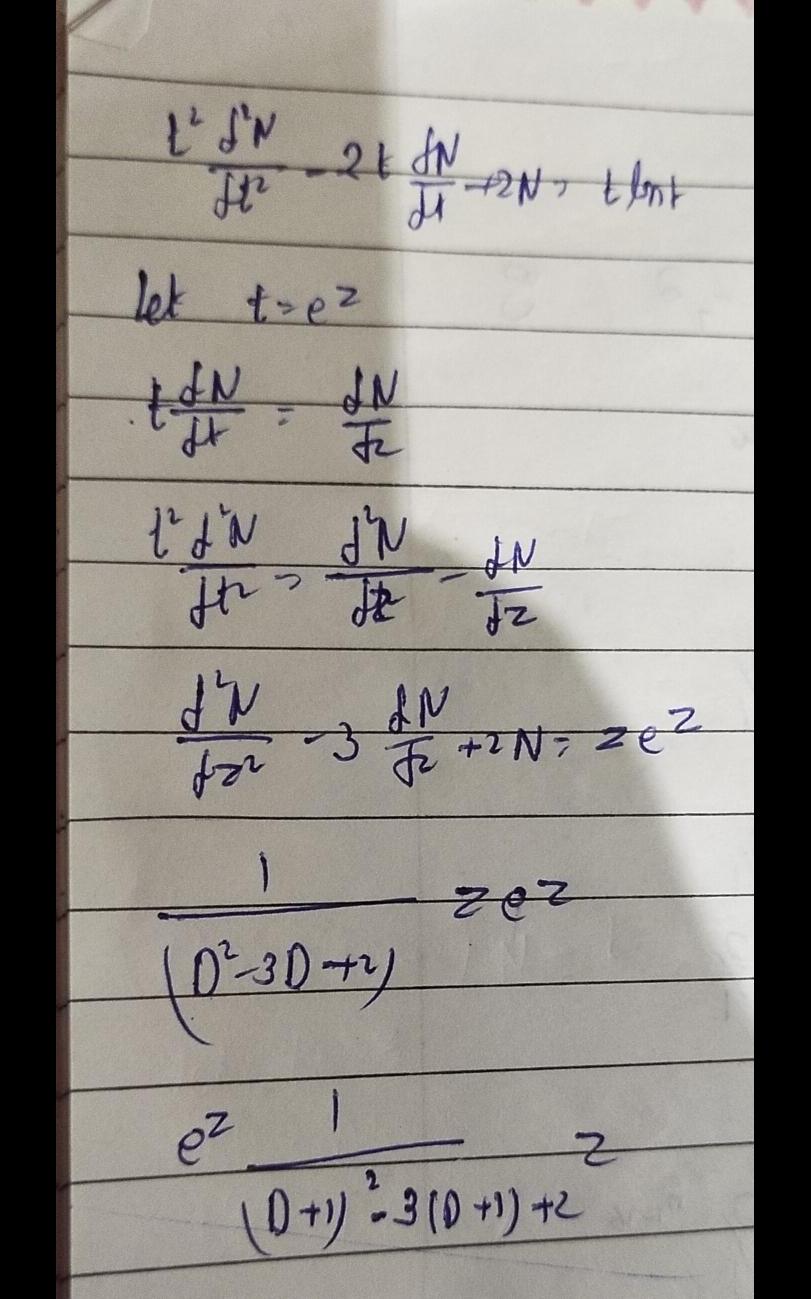 t² d²N/dt² - 2t dN/dt + 2N = t lnt
Let t = e^z
t dN/dt = dN/dz
t² d²N/dt² = d²N/dz² - dN/dz
d²N/dz² - 3 dN/dz + 2N = ze^z
1/(D²-3D+2) ze^z
e^z 1/((D+1)²-3(D+1)+2) z